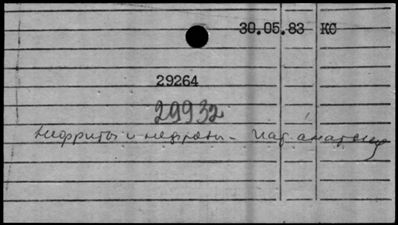 30.05.83 КС
29264
29932
Нефриты и нефрозы - пат. анатомия